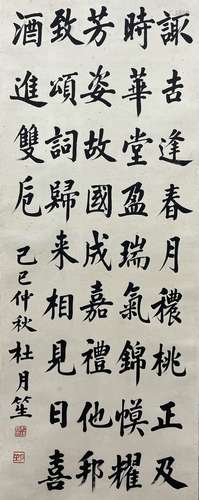 諏吉逢春月穠桃正及
時華堂盈瑞氣錦幙耀
芳姿故國成嘉禮他邦
致頌詞歸来相見日喜
酒進雙卮
己巳仲秋杜月笙